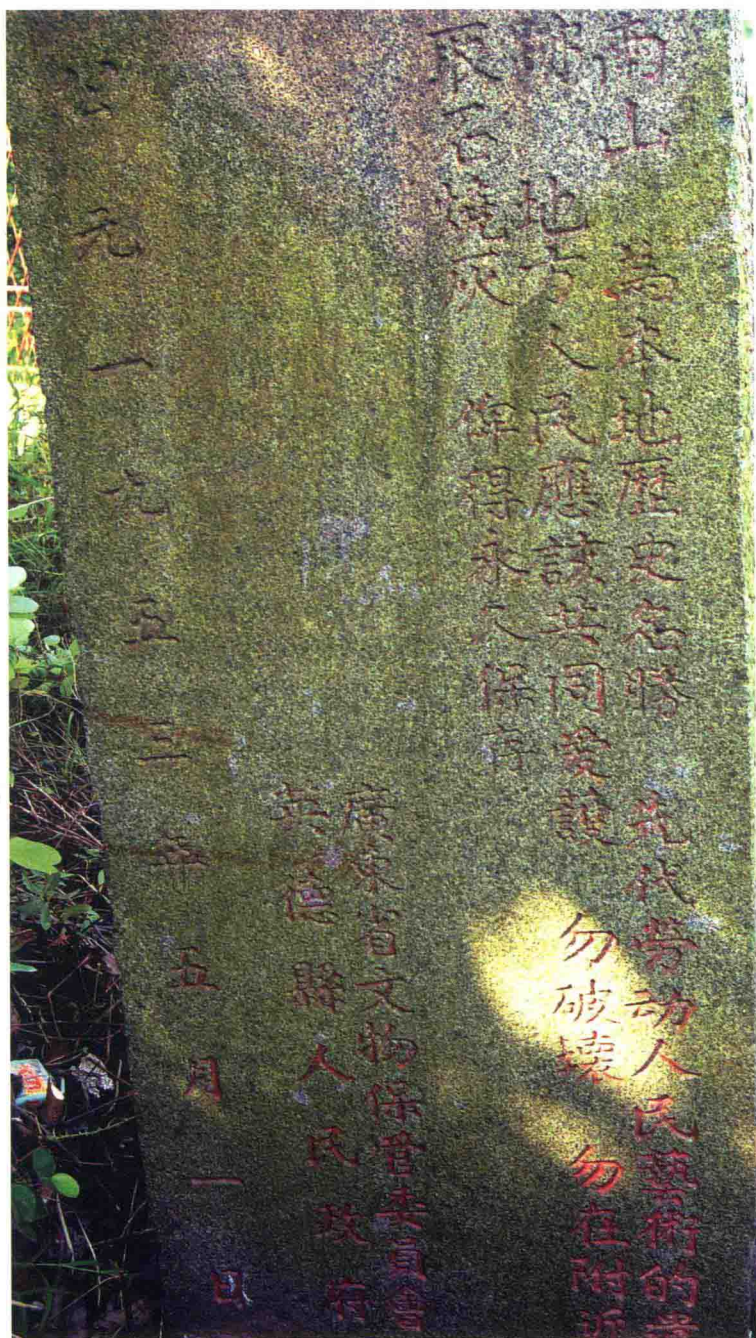 南山 為本地歷史名勝 先代勞動人民藝術的
地方人民應該共同愛護 勿破壞 勿在附近
取石燒灰 俾得永久保存
廣東省文物保管委員會
英德縣人民政府
公元一九五三年五月一日